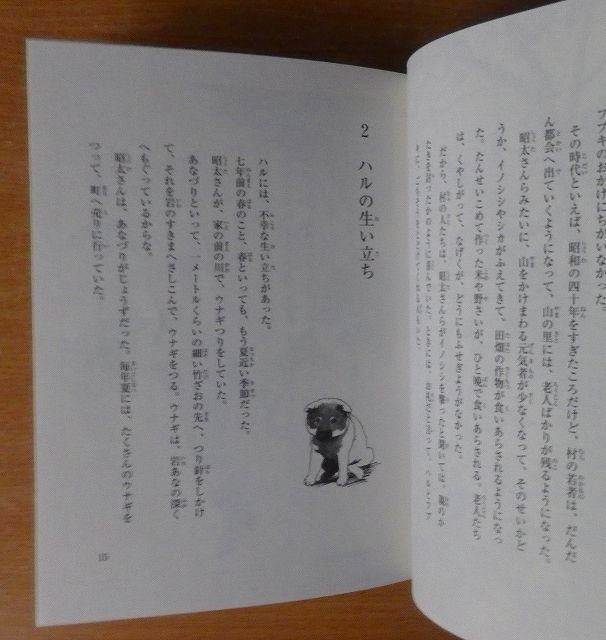 ブブキのおかげにちがいなかった。
その時代といえば、昭和の四十年をすぎたころだけど、村の若者は、だんだ
ん都会へ出ていくようになって、山の里には、老人ばかりが残るようになった。
昭太さんらみたいに、山をかけまわる元気者が少なくなって、そのせいかど
うか、イノシシやシカがふえてきて、田畑の作物が食いあらされるようになっ
た。たんせいこめて作った米や野さいが、ひと晩で食いあらされる。老人たち
は、くやしがって、なげくが、どうにもふせぎようがなかった。
だから、村の人たちは、昭太さんらがイノシシを撃ったと聞いては、
2 ハルの生い立ち
ハルには、不幸な生い立ちがあった。
七年前の春のこと、春といっても、もう夏近い季節だった。
昭太さんが、家の前の川で、ウナギつりをしていた。
あなづりといって、一メートルくらいの細い竹ざおの先へ、つり針をしかけ
て、それを岩のすきまへさしこんで、ウナギをつる。ウナギは、岩あなの深く
へもぐっているからな。
昭太さんは、あなづりがじょうずだった。毎年夏には、たくさんのウナギを
つって、町へ売りに行っていた。